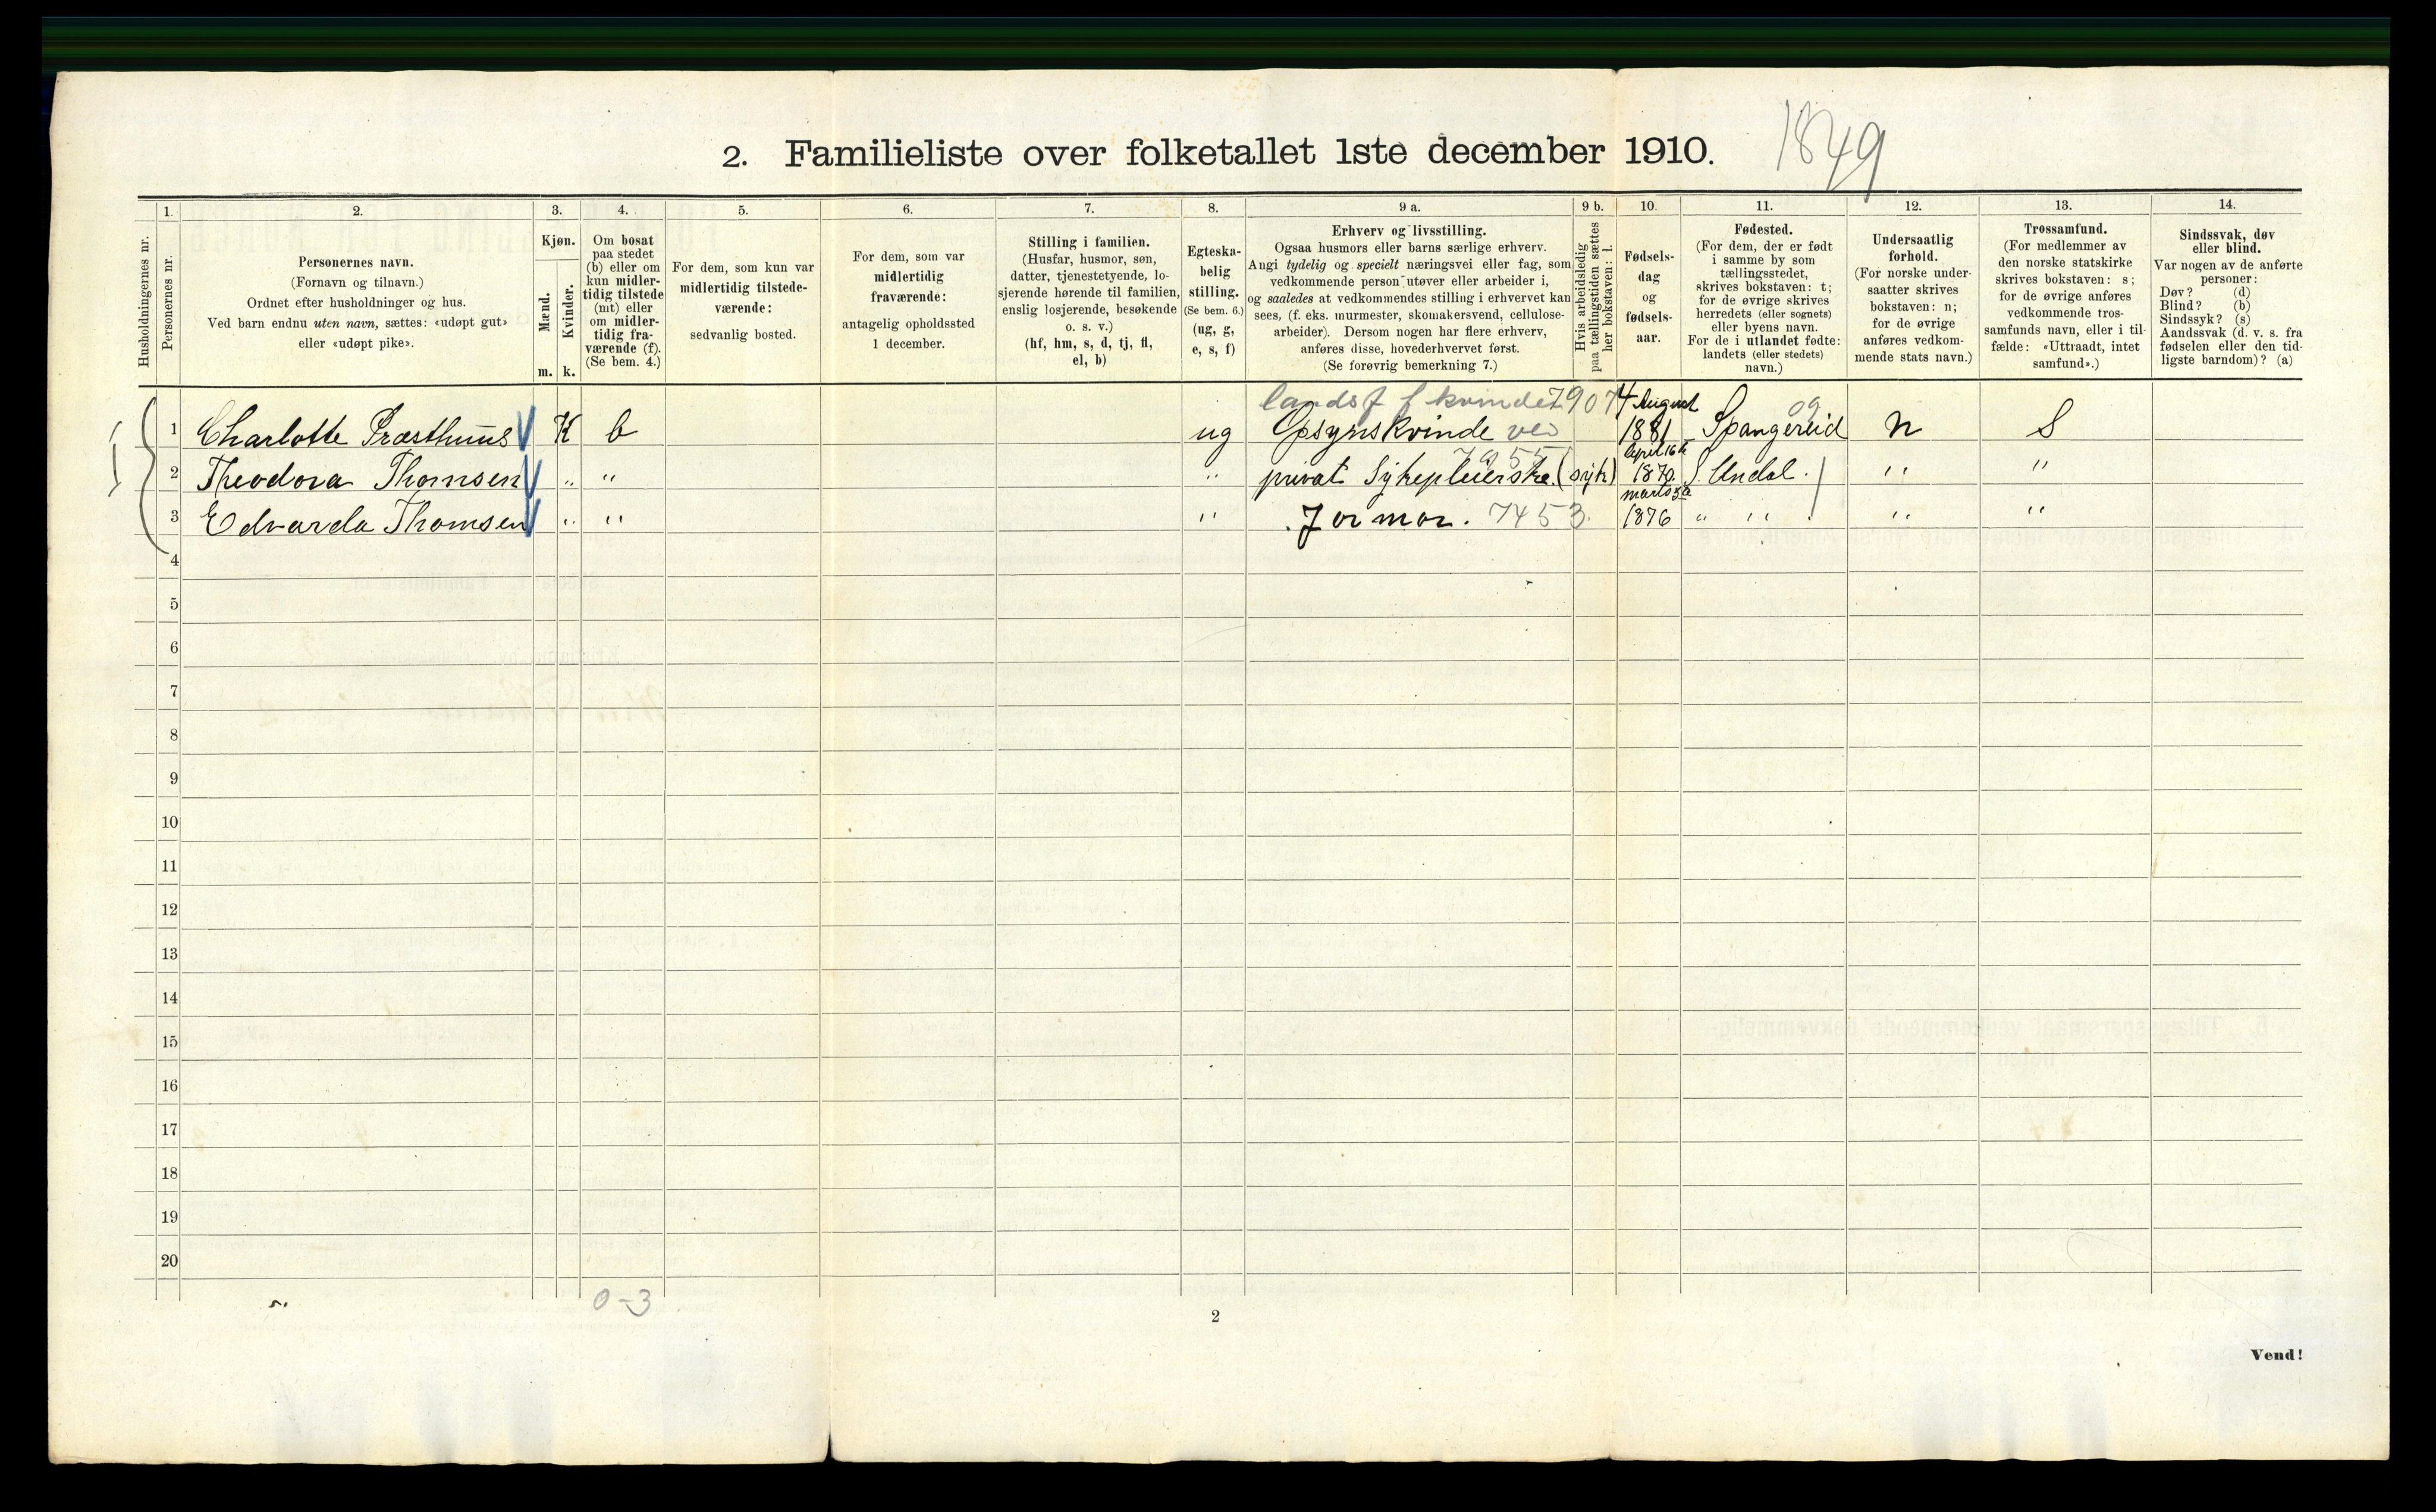 2. Familieliste over folketallet 1ste december 1910.
1849
Husholdningernes nr.
1.
Personernes nr.
2.
Personernes navn.
(Fornavn og tilnavn.)
Ordnet efter husholdninger og hus.
Ved barn endnu uten navn, sættes: «udøpt gut»
eller «udøpt pike».
3.
Kjøn.
Mænd.
Kvinder.
m. k.
4.
Om bosat
paa stedet
(b) eller om
kun midler-
tidig tilstede
(mt) eller
om midler-
tidig fra-
værende (f).
(Se bem. 4.)
5.
For dem, som kun var
midlertidig tilstede-
værende:
sedvanlig bosted.
6.
For dem, som var
midlertidig
fraværende:
antagelig opholdssted
1 december.
7.
Stilling i familien.
(Husfar, husmor, søn,
datter, tjenestetyende, lo-
sjerende hørende til familien,
enslig losjerende, besøkende
o. s. v.)
(hf, hm, s, d, tj, fl,
el, b)
8.
Egteska-
belig
stilling.
(Se bem. 6.)
(ug, g,
e, s, f)
9 a.
Erhverv og livsstilling.
Ogsaa husmors eller barns særlige erhverv.
Angi tydelig og specielt næringsvei eller fag, som
vedkommende person utøver eller arbeider i,
og saaledes at vedkommendes stilling i erhvervet kan
sees, (f. eks. murmester, skomakersvend, cellulose-
arbeider). Dersom nogen har flere erhverv,
anføres disse, hovederhvervet først.
(Se forøvrig bemerkning 7.)
9 b.
Hvis arbeidsledig
paa tællingstiden sættes
her bokstaven: l.
10.
Fødsels-
dag
og
fødsels-
aar.
11.
Fødested.
(For dem, der er født
i samme by som
tællingsstedet,
skrives bokstaven: t;
for de øvrige skrives
herredets (eller sognets)
eller byens navn.
For de i utlandet fødte:
landets (eller stedets)
navn.)
12.
Undersaatlig
forhold.
(For norske under-
saatter skrives
bokstaven: n;
for de øvrige
anføres vedkom-
mende stats navn.)
13.
Trossamfund.
(For medlemmer av
den norske statskirke
skrives bokstaven: s;
for de øvrige anføres
vedkommende tros-
samfunds navn, eller i til-
fælde: «Uttraadt, intet
samfund».)
14.
Sindssvak, døv
eller blind.
Var nogen av de anførte
personer:
Døv? (d)
Blind? (b)
Sindssyk? (s)
Aandssvak (d. v. s. fra
fødselen eller den tid-
ligste barndom)? (a)
landsf f kvinder 7907 4 August 09
1 Charlotte Præsthuus K b ug Opsynskvinde ved 1881 Spangereid n S
7955 April 16
2 Theodora Thomsen " " " privat Sykepleierske (syk) 1870 S. Undal. " "
marts 3
3 Edvarda Thomsen " " " Jormor. 7453 1876 " " " "
4
5
6
7
8
9
10
11
12
13
14
15
16
17
18
19
20
0-3
2
Vend!